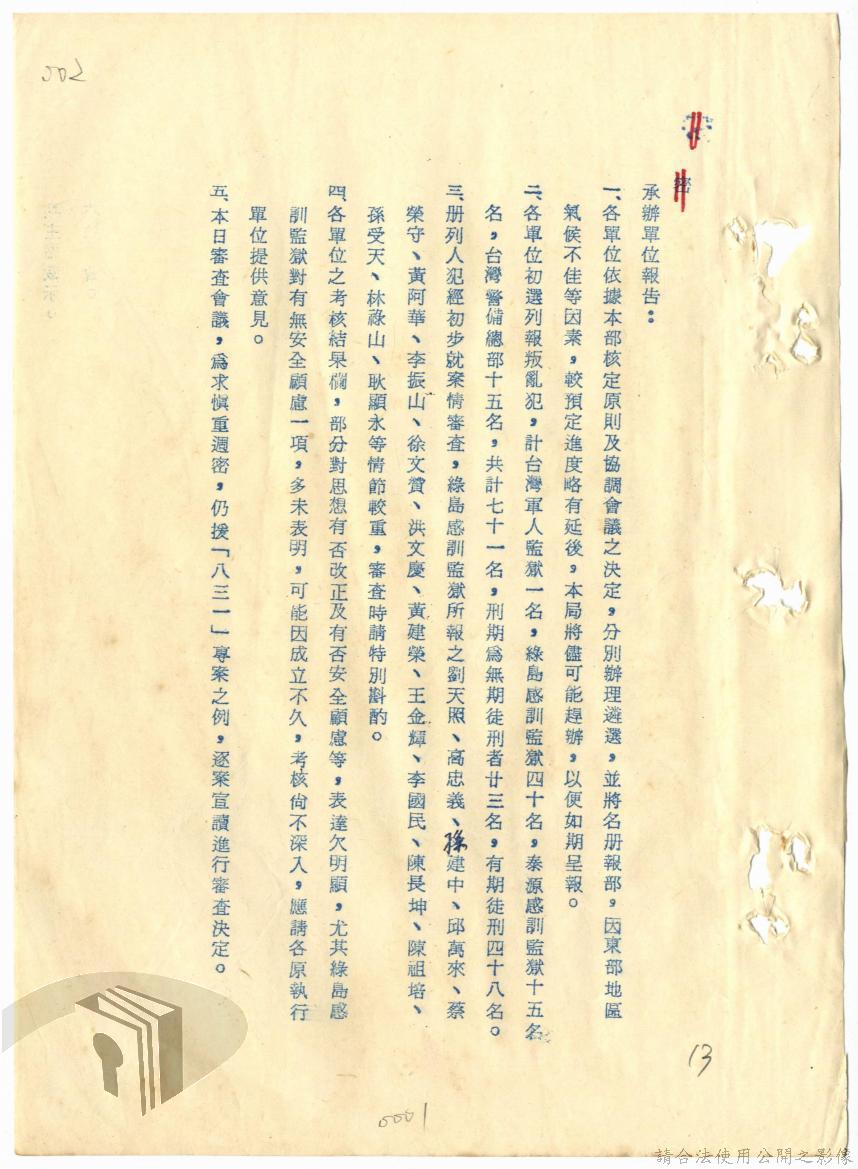 密
承辦單位報告：
一、各單位依據本部核定原則及協調會議之決定，分別辦理遴選，並將名册報部，因東部地區
氣候不佳等因素，較預定進度略有延後，本局將儘可能趕辦，以便如期呈報。
二、各單位初選列報叛亂犯，計台灣軍人監獄一名，綠島感訓監獄四十名，泰源感訓監獄十五名
名，台灣警備總部十五名，共計七十一名，刑期爲無期徒刑者廿三名，有期徒刑四十八名。
三、册列人犯經初步就案情審查，綠島感訓監獄所報之劉天照、高忠義、孫建中、邱萬來、蔡
榮守、黃阿華、李振山、徐文贊、洪文慶、黃建榮、王金輝、李國民、陳長坤、陳祖培、
孫受天、林祿山、耿顯永等情節較重，審查時請特別斟酌。
四、各單位之考核結果欄，部分對思想有否改正及有否安全顧慮等，表達欠明顯，尤其綠島感
訓監獄對有無安全顧慮一項，多未表明，可能因成立不久，考核尙不深入，應請各原執行
單位提供意見。
五、本日審查會議，爲求慎重週密，仍援「八三一」專案之例，逐案宣讀進行審查決定。
002
13
0001
請合法使用公開之影像